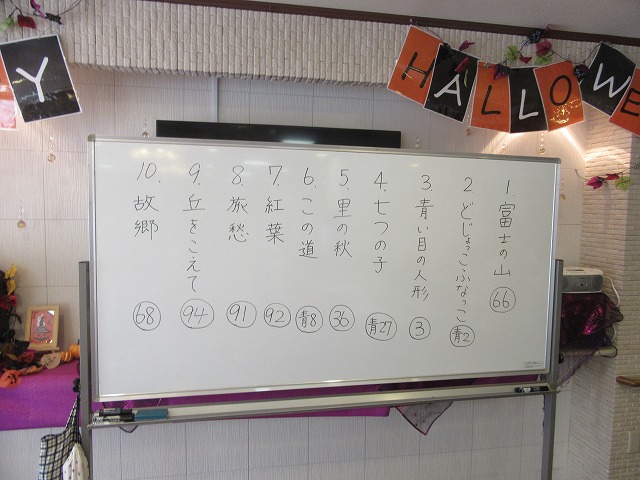 Y
HALLOWE
1. 富士の山 66
2. どじょっこふなっこ 青2
3. 青い目の人形 3
4. 七つの子 青27
5. 里の秋 36
6. この道 青8
7. 紅葉 92
8. 旅愁 91
9. 丘をこえて 94
10. 故郷 68